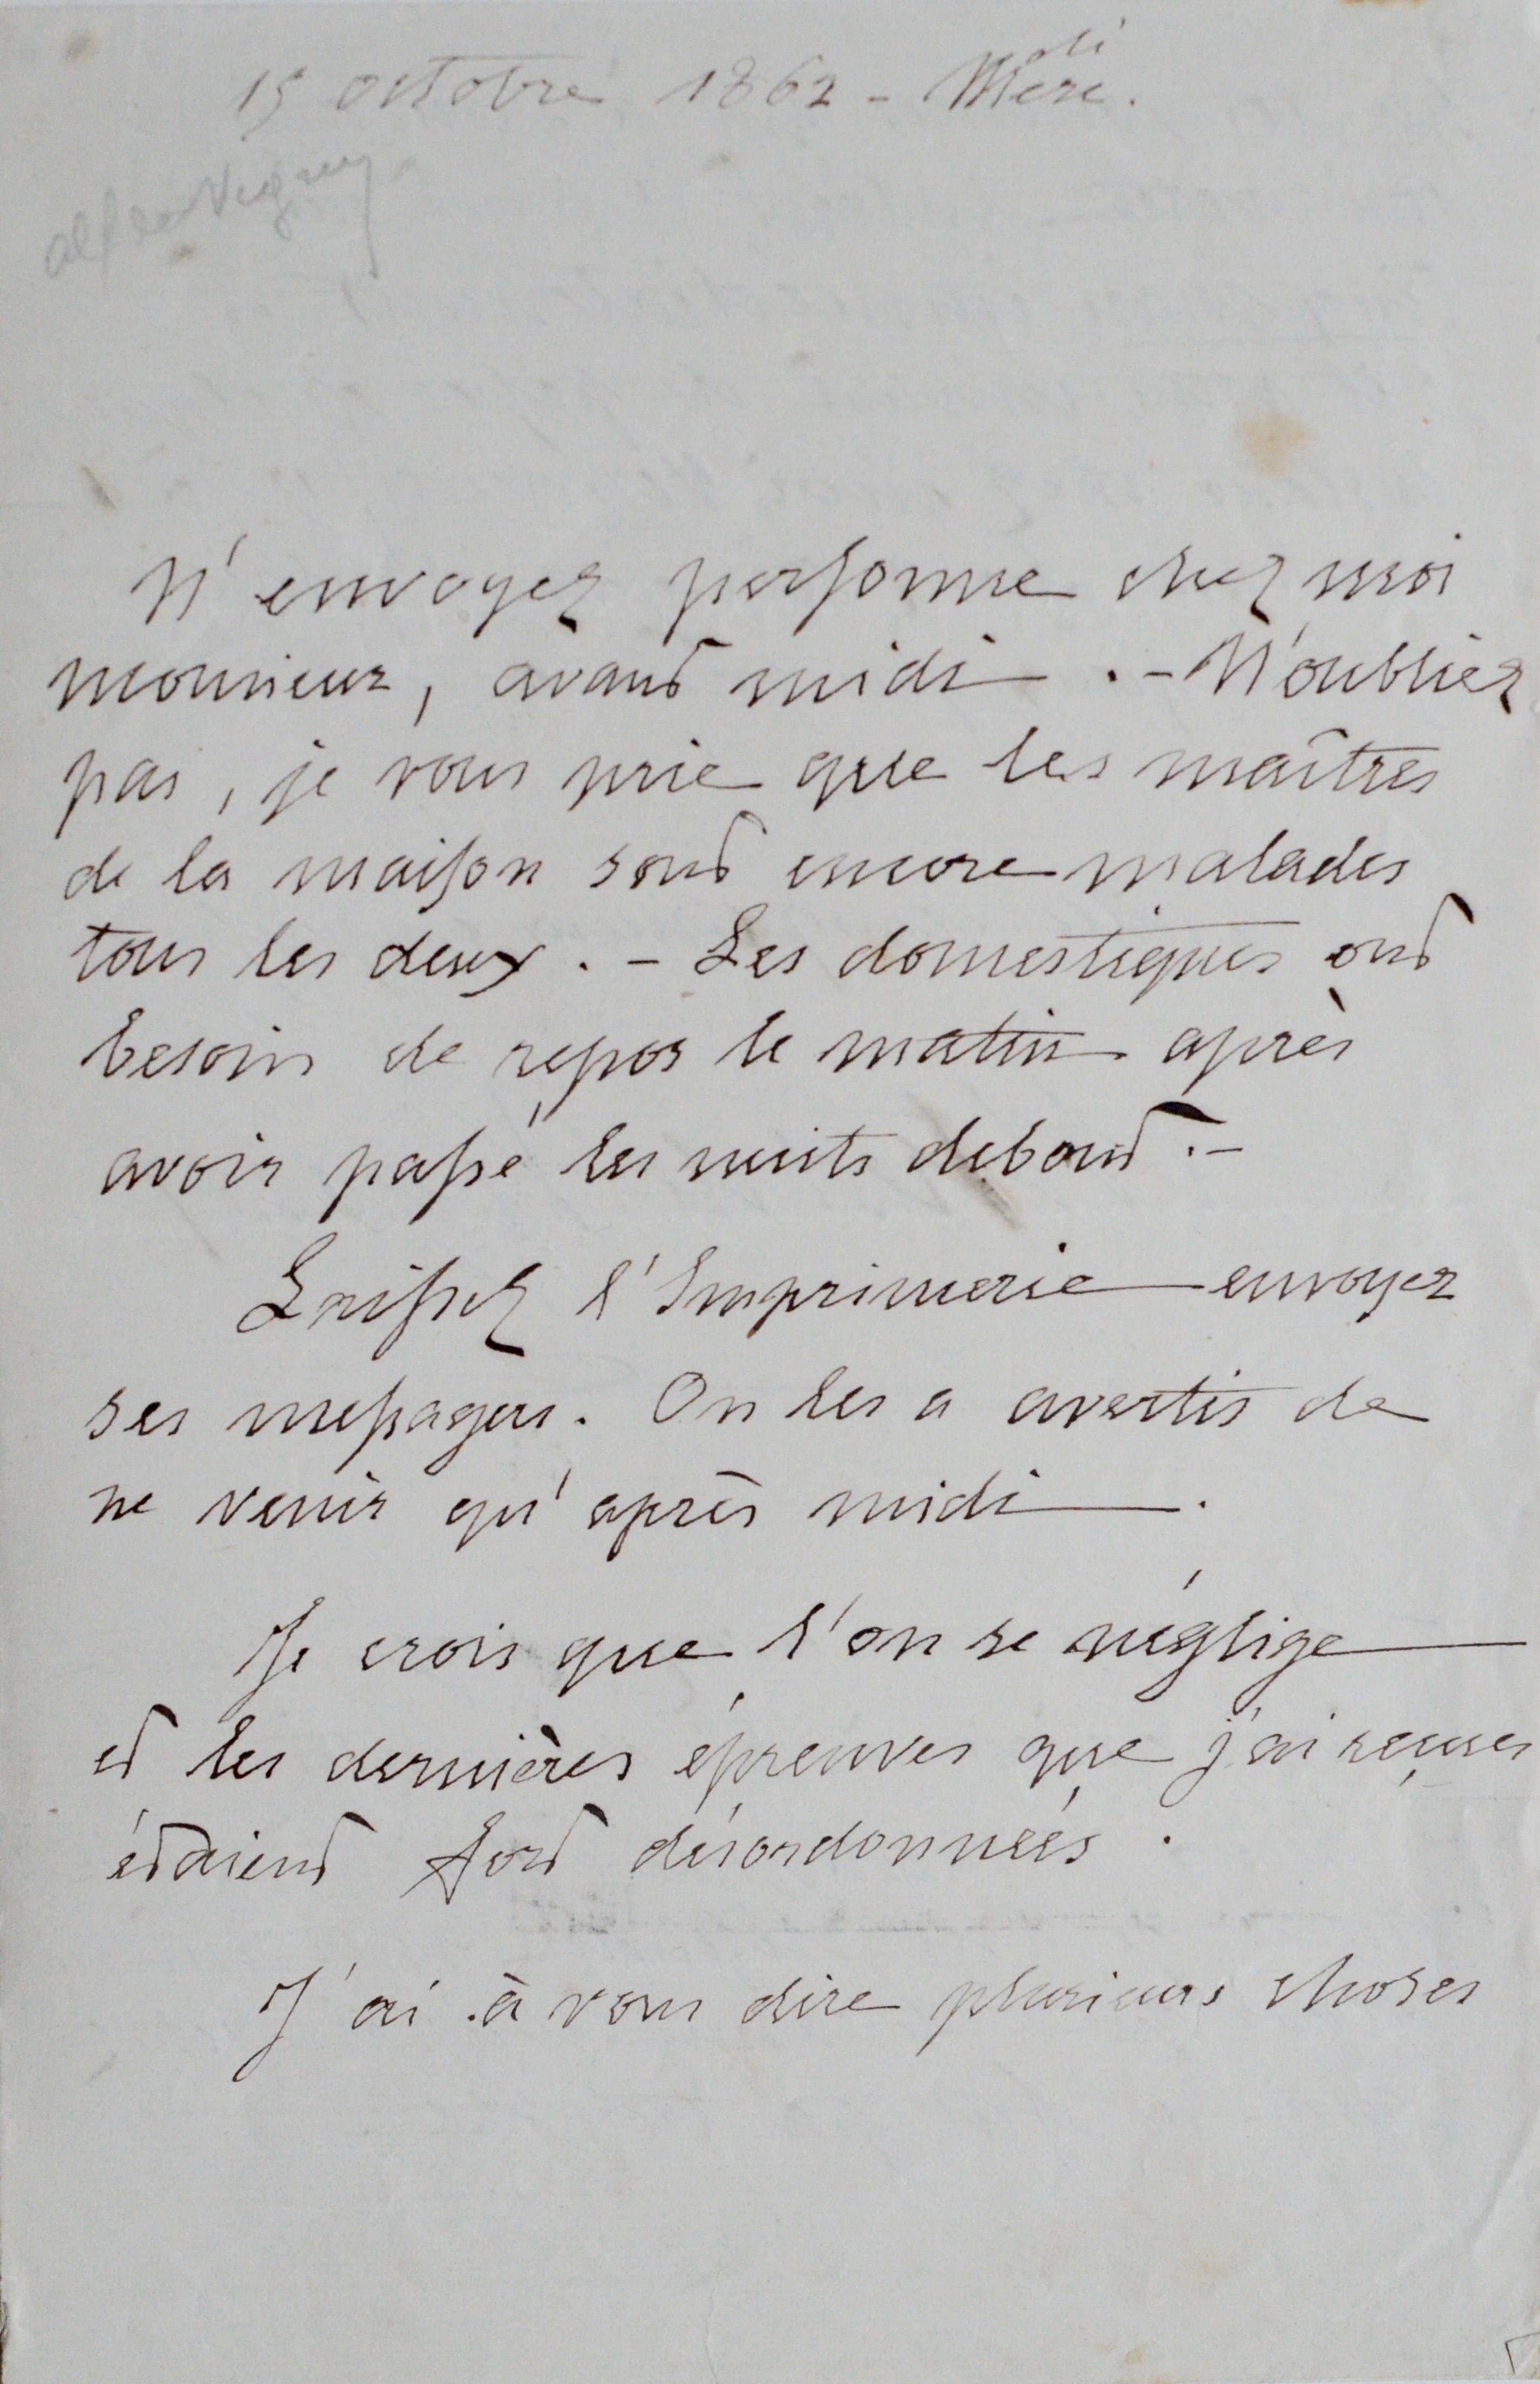 15 octobre 1862 - Mercdi.
alfred Vigny
N'envoyez personne chez moi
monsieur, avant midi. - N'oubliez
pas, je vous prie que les maîtres
de la maison sont encore malades
tous les deux. - Les domestiques ont
besoin de repos le matin après
avoir passé les nuits debout. -
Laissez l'Imprimerie envoyer
ses messagers. On les a avertis de
ne venir qu'après midi.
Je crois que l'on se néglige
et les dernières épreuves que j'ai reçues
étaient fort désordonnées.
J'ai à vous dire plusieurs choses